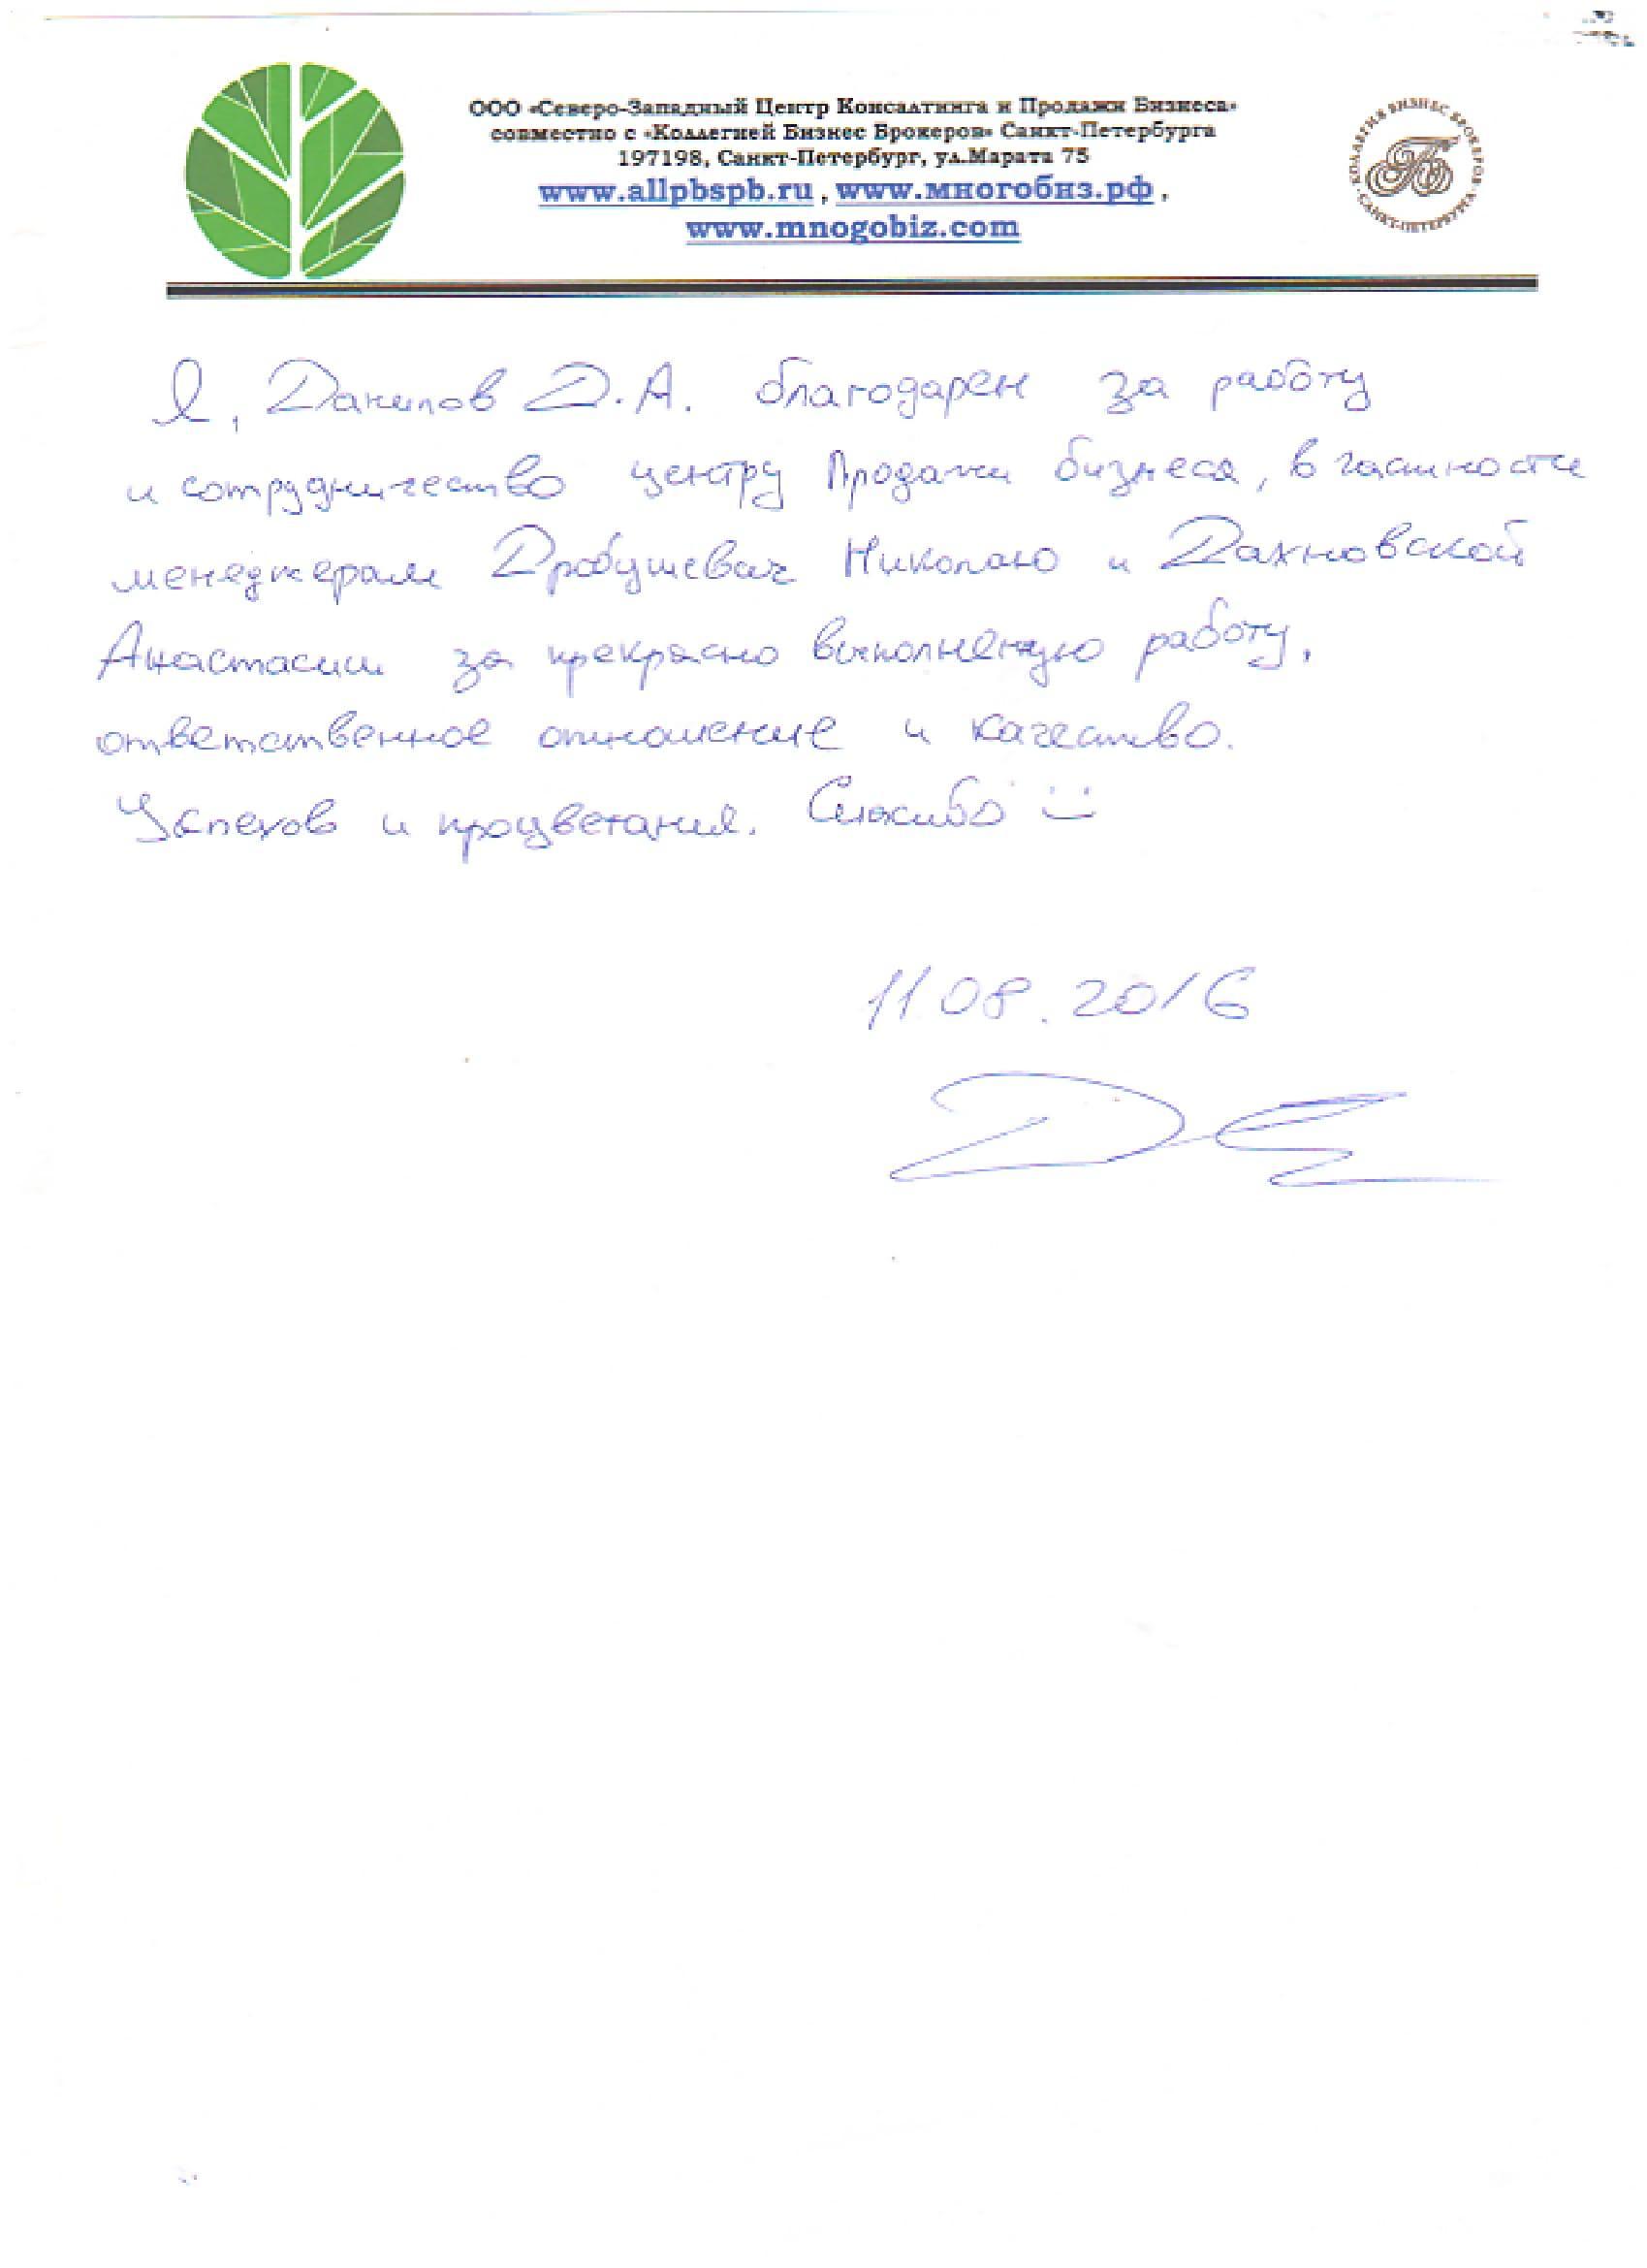 ООО «Северо-Западный Центр Консалтинга и Продажи Бизнеса»
совместно с «Коллегией Бизнес Брокеров» Санкт-Петербурга
197198, Санкт-Петербург, ул.Марата 75
www.allpbspb.ru , www.многобиз.рф ,
www.mnogobiz.com
КОЛЛЕГИЯ БИЗНЕС БРОКЕРОВ
САНКТ-ПЕТЕРБУРГА
Я, Данилов Д.А. благодарен за работу
и сотрудничество центру Продажи бизнеса, в частности
менеджерам Дробушевич Николаю и Дахновской
Анастасии за прекрасно выполненую работу,
ответственное отношение и качество.
Успехов и процветания. Спасибо
11.08.2016